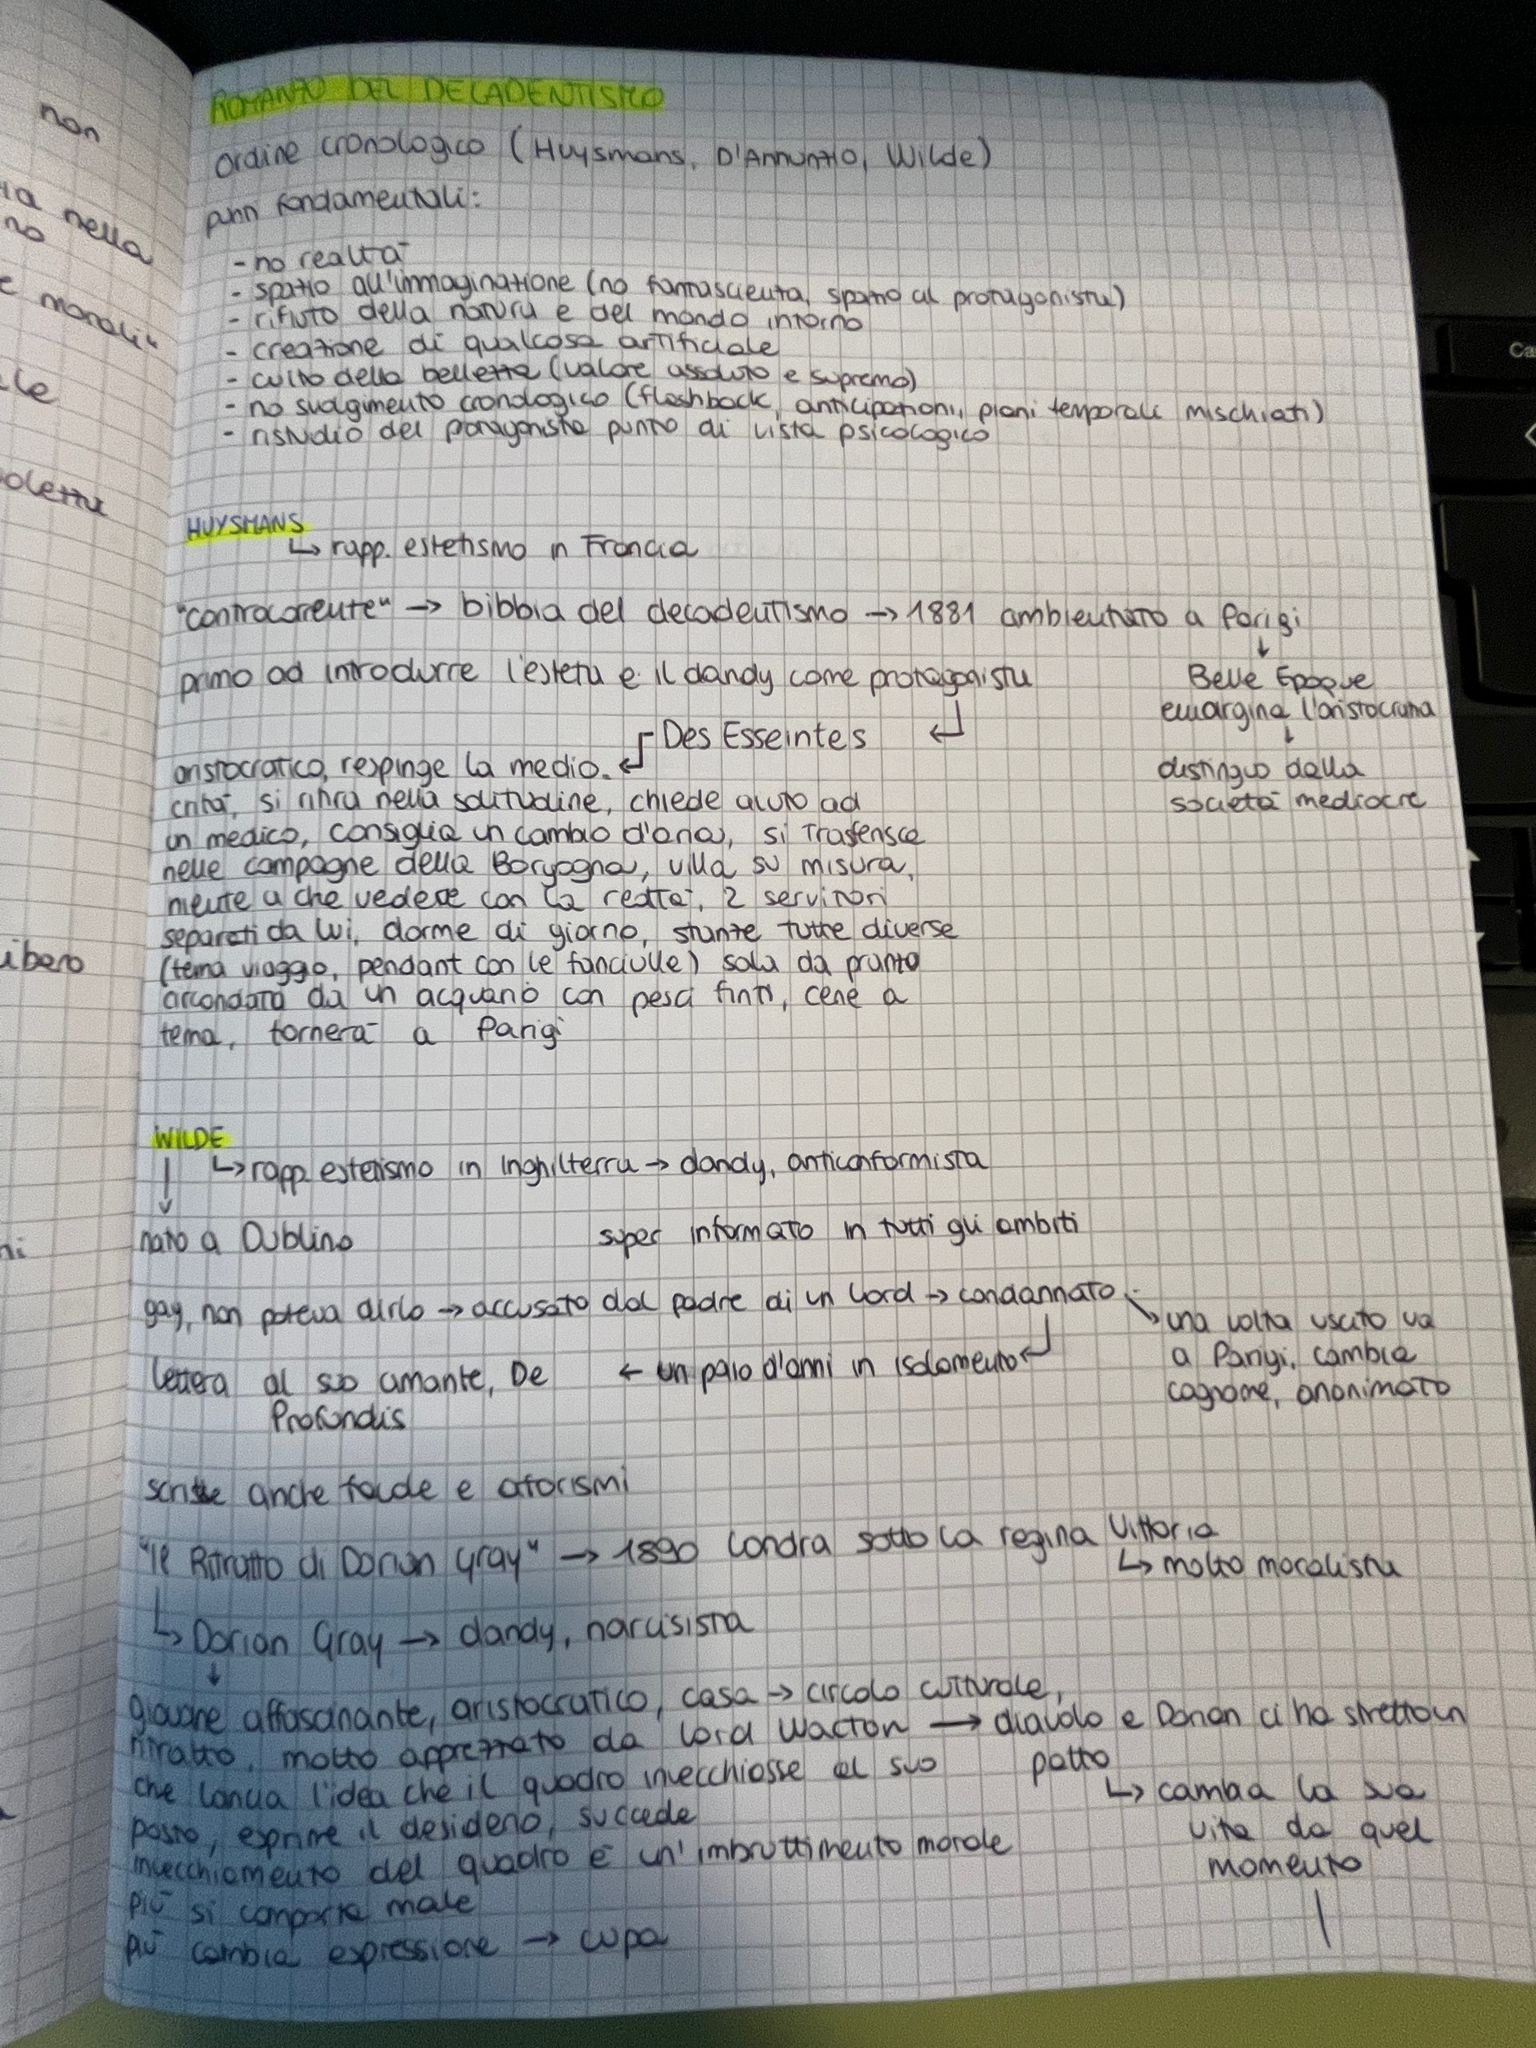 non
nella
no
e morali"
le
ibero
ROMANZO DEL DECADENTISMO
ordine cronologico (Huysmans, D'Annunzio, Wilde)
punti fondamentali:
- no realtà
- spazio all'immaginazione (no fantascienza, spazio al protagonista)
- rifiuto della natura e del mondo intorno
- creazione di qualcosa artificiale
- culto della bellezza (valore assoluto e supremo)
- no svolgimento cronologico (flashback, anticipazioni, piani temporali mischiati)
- ristudio del protagonista punto di vista psicologico
HUYSMANS
↳ rapp. estetismo in Francia
"controcorrente" → bibbia del decadentismo → 1881 ambientato a Parigi
primo ad introdurre l'esteta e il dandy come protagonista
Belle Époque
emargina l'aristocrazia
distinguo dalla
società mediocre
Des Esseintes
aristocratico, respinge la medio-
crità, si ritira nella solitudine, chiede aiuto ad
un medico, consiglia un cambio d'aria, si trasferisce
nelle campagne della Borgogna, villa su misura,
niente a che vedere con la realtà, 2 servitori
separati da lui, dorme di giorno, stanze tutte diverse
(tema viaggio, pendant con le fanciulle) sala da pranzo
circondata da un acquario con pesci finti, cene a
tema, tornerà a Parigi
WILDE
↳ rapp. estetismo in Inghilterra → dandy, anticonformista
nato a Dublino super informato in tutti gli ambiti
gay, non poteva dirlo → accusato dal padre di un Lord → condannato
una volta uscito va
a Parigi, cambia
cognome, anonimato
lettera al suo amante, De ← un paio d'anni in isolamento
Profondis
scrisse anche favole e aforismi
"Il Ritratto di Dorian Gray" → 1890 Londra sotto la regina Vittoria
↳ molto moralista
↳ Dorian Gray → dandy, narcisista
giovane affascinante, aristocratico, casa → circolo culturale,
ritratto, molto apprezzato da Lord Wacton → diavolo e Dorian ci ha stretto un
patto
che lancia l'idea che il quadro invecchiasse al suo
posto, esprime il desiderio, succede
↳ cambia la sua
vita da quel
momento
invecchiamento del quadro è un'imbruttimento morale
più si comporta male
più cambia espressione → cupa